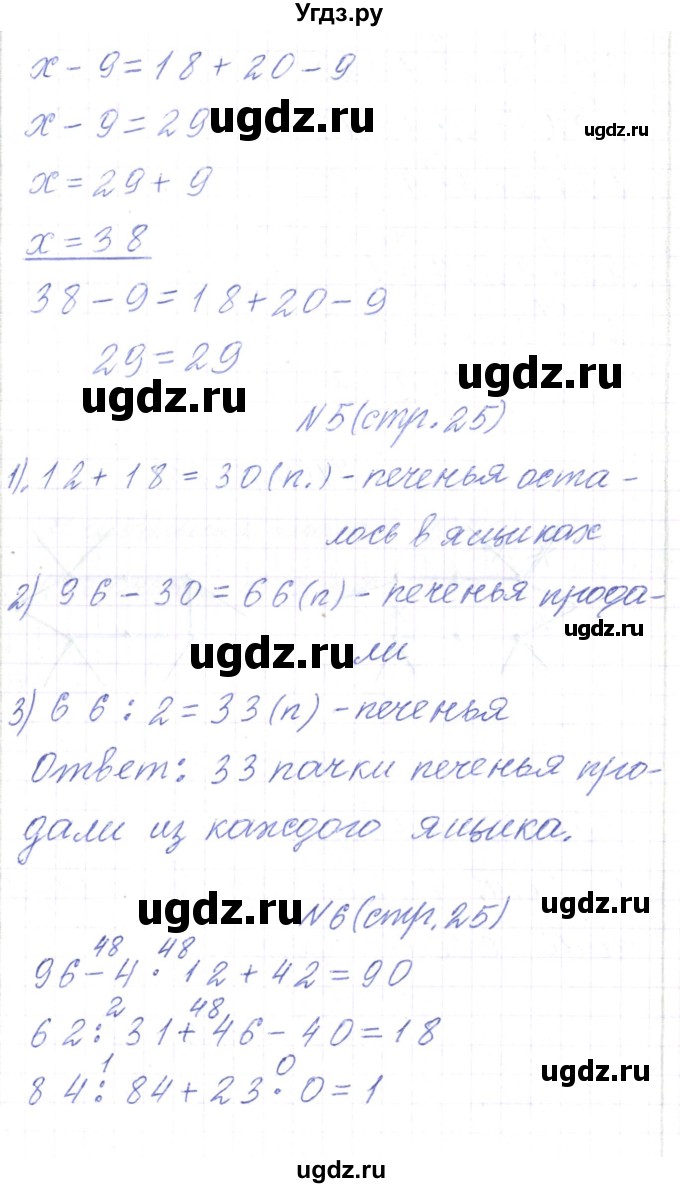 Угдз.ру
x - 9 = 18 + 20 - 9
x - 9 = 29
ugdz.ru
ugdz.ru
x = 29 + 9
x = 38
38 - 9 = 18 + 20 - 9
29 = 29
ugdz.ru
ugdz.ru
N 5 (стр. 25)
1). 12 + 18 = 30 (п.) - печенья оста -
лось в ящиках
2) 96 - 30 = 66 (п) - печенья прода-
ugdz.ru
ugdz.ru
ли
3) 66 : 2 = 33 (п) - печенья
Ответ: 33 пачки печенья про-
дали из каждого ящика.
ugdz.ru
N 6 (стр. 25)
ugdz.ru
48 48
96 - 4 · 12 + 42 = 90
2 48
62 : 31 + 46 - 40 = 18
1 0
84 : 84 + 23 · 0 = 1
ugdz.ru
ugdz.ru